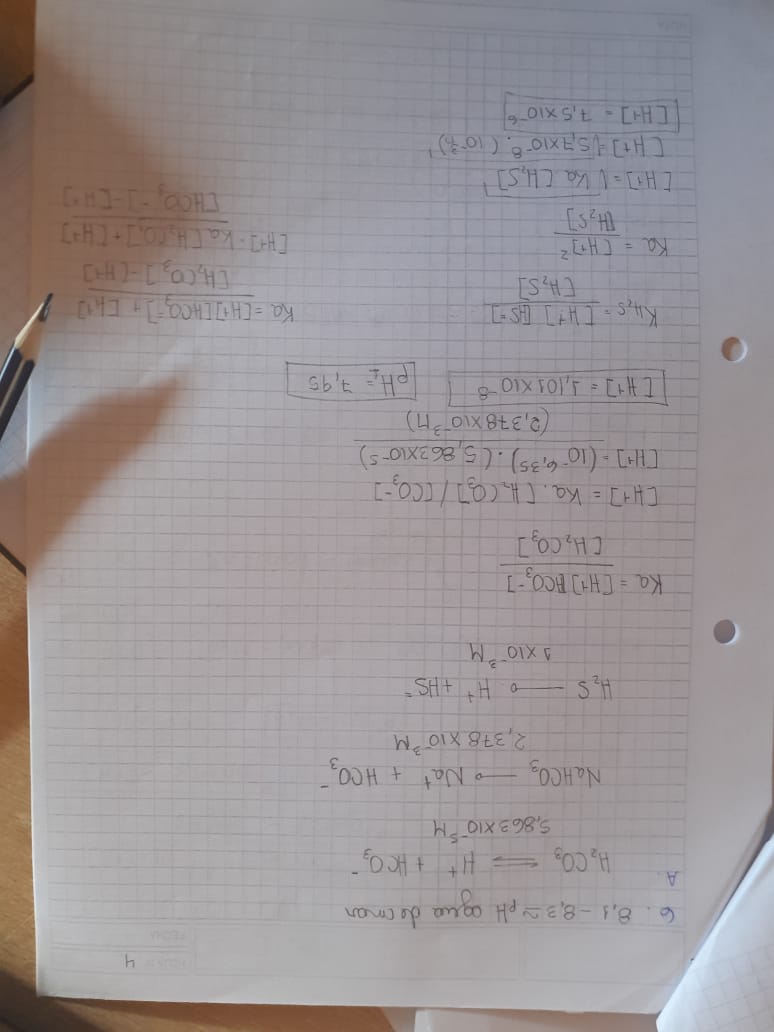 4
6. 8,1 - 8,3 ≃ pH agua de mar
A.
H₂CO₃ ⇌ H⁺ + HCO₃⁻
5,863x10⁻⁵M
NaHCO₃ → Na⁺ + HCO₃⁻
2,378x10⁻³M
H₂S → H⁺ + HS⁼
1x10⁻³M
Ka = [H+][HCO₃-]
[H₂CO₃]
[H+] = Ka. [H₂CO₃] / [CO₃-]
[H+] = (10⁻⁶'³⁵) . (5,863x10⁻⁵)
(2,378x10⁻³M)
[H+] = 1,101x10⁻⁸ pH₁= 7,95
K H₂S = [H+] [HS=]
[H₂S]
Ka = [H+]²
[H₂S]
[H+] = √Ka [H₂S]
[H+] = √5,7x10⁻⁸. (10⁻³)
[H+] = 7,5x10⁻⁶
Ka = [H+][HCO₃-] + [H+]
[H₂CO₃] - [H+]
[H+] = Ka [H₂CO₃] + [H+]
[HCO₃-] - [H+]